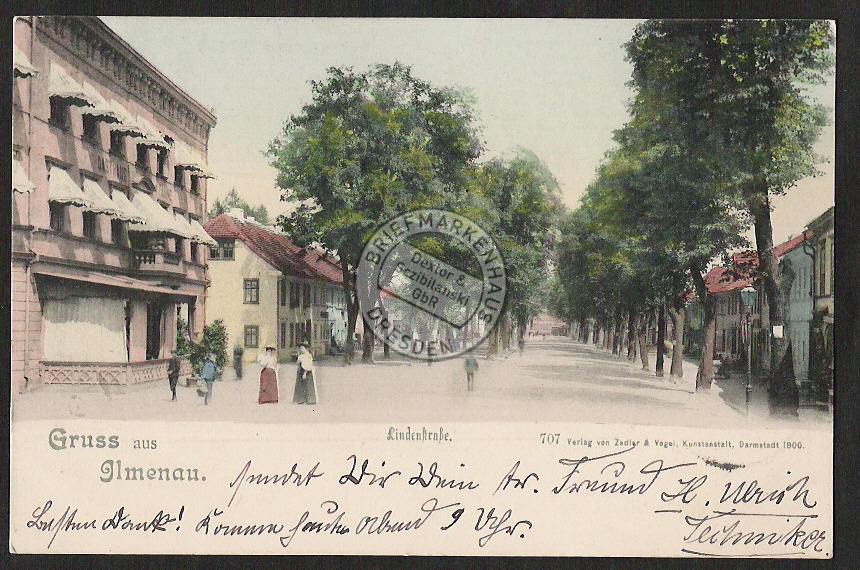 BRIEFMARKENHAUS
Dextor &
Sczibilanski
GbR
DRESDEN
Lindenstraße.
707 Verlag von Zedler & Vogel, Kunstanstalt, Darmstadt 1900.
Gruss aus
Ilmenau.
sendet Dir Dein tr. Freund H. Ulrich
Techniker.
Besten Dank! Komme heute Abend 9 Uhr.